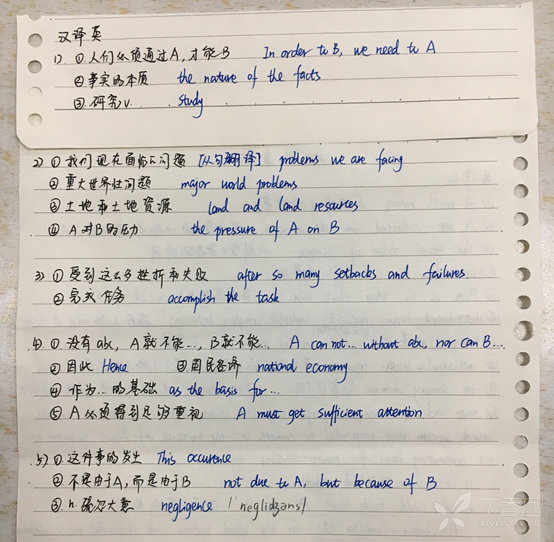 汉译英
1) ① 人们必须通过A,才能B In order to B, we need to A
② 事实的本质 the nature of the facts
③ 研究v. study
2) ① 我们现在面临的问题 [从句翻译] problems we are facing
② 重大世界性问题 major world problems
③ 土地和土地资源 land and land resources
④ A对B的压力 the pressure of A on B
3) ① 受到这么多挫折和失败 after so many setbacks and failures.
② 完成任务 accomplish the task
4) ① 没有abc, A就不能..., B就不能... A can not... without abc, nor can B...
② 因此 Hence ③ 国民经济 national economy
④ 作为...的基础 as the basis for...
⑤ A必须得到足够重视 A must get sufficient attention.
5) ① 这件事的发生 This occurence
② 不是由于A,而是由于B not due to A, but because of B
③ n.疏忽大意 negligence /ˈneglidʒəns/